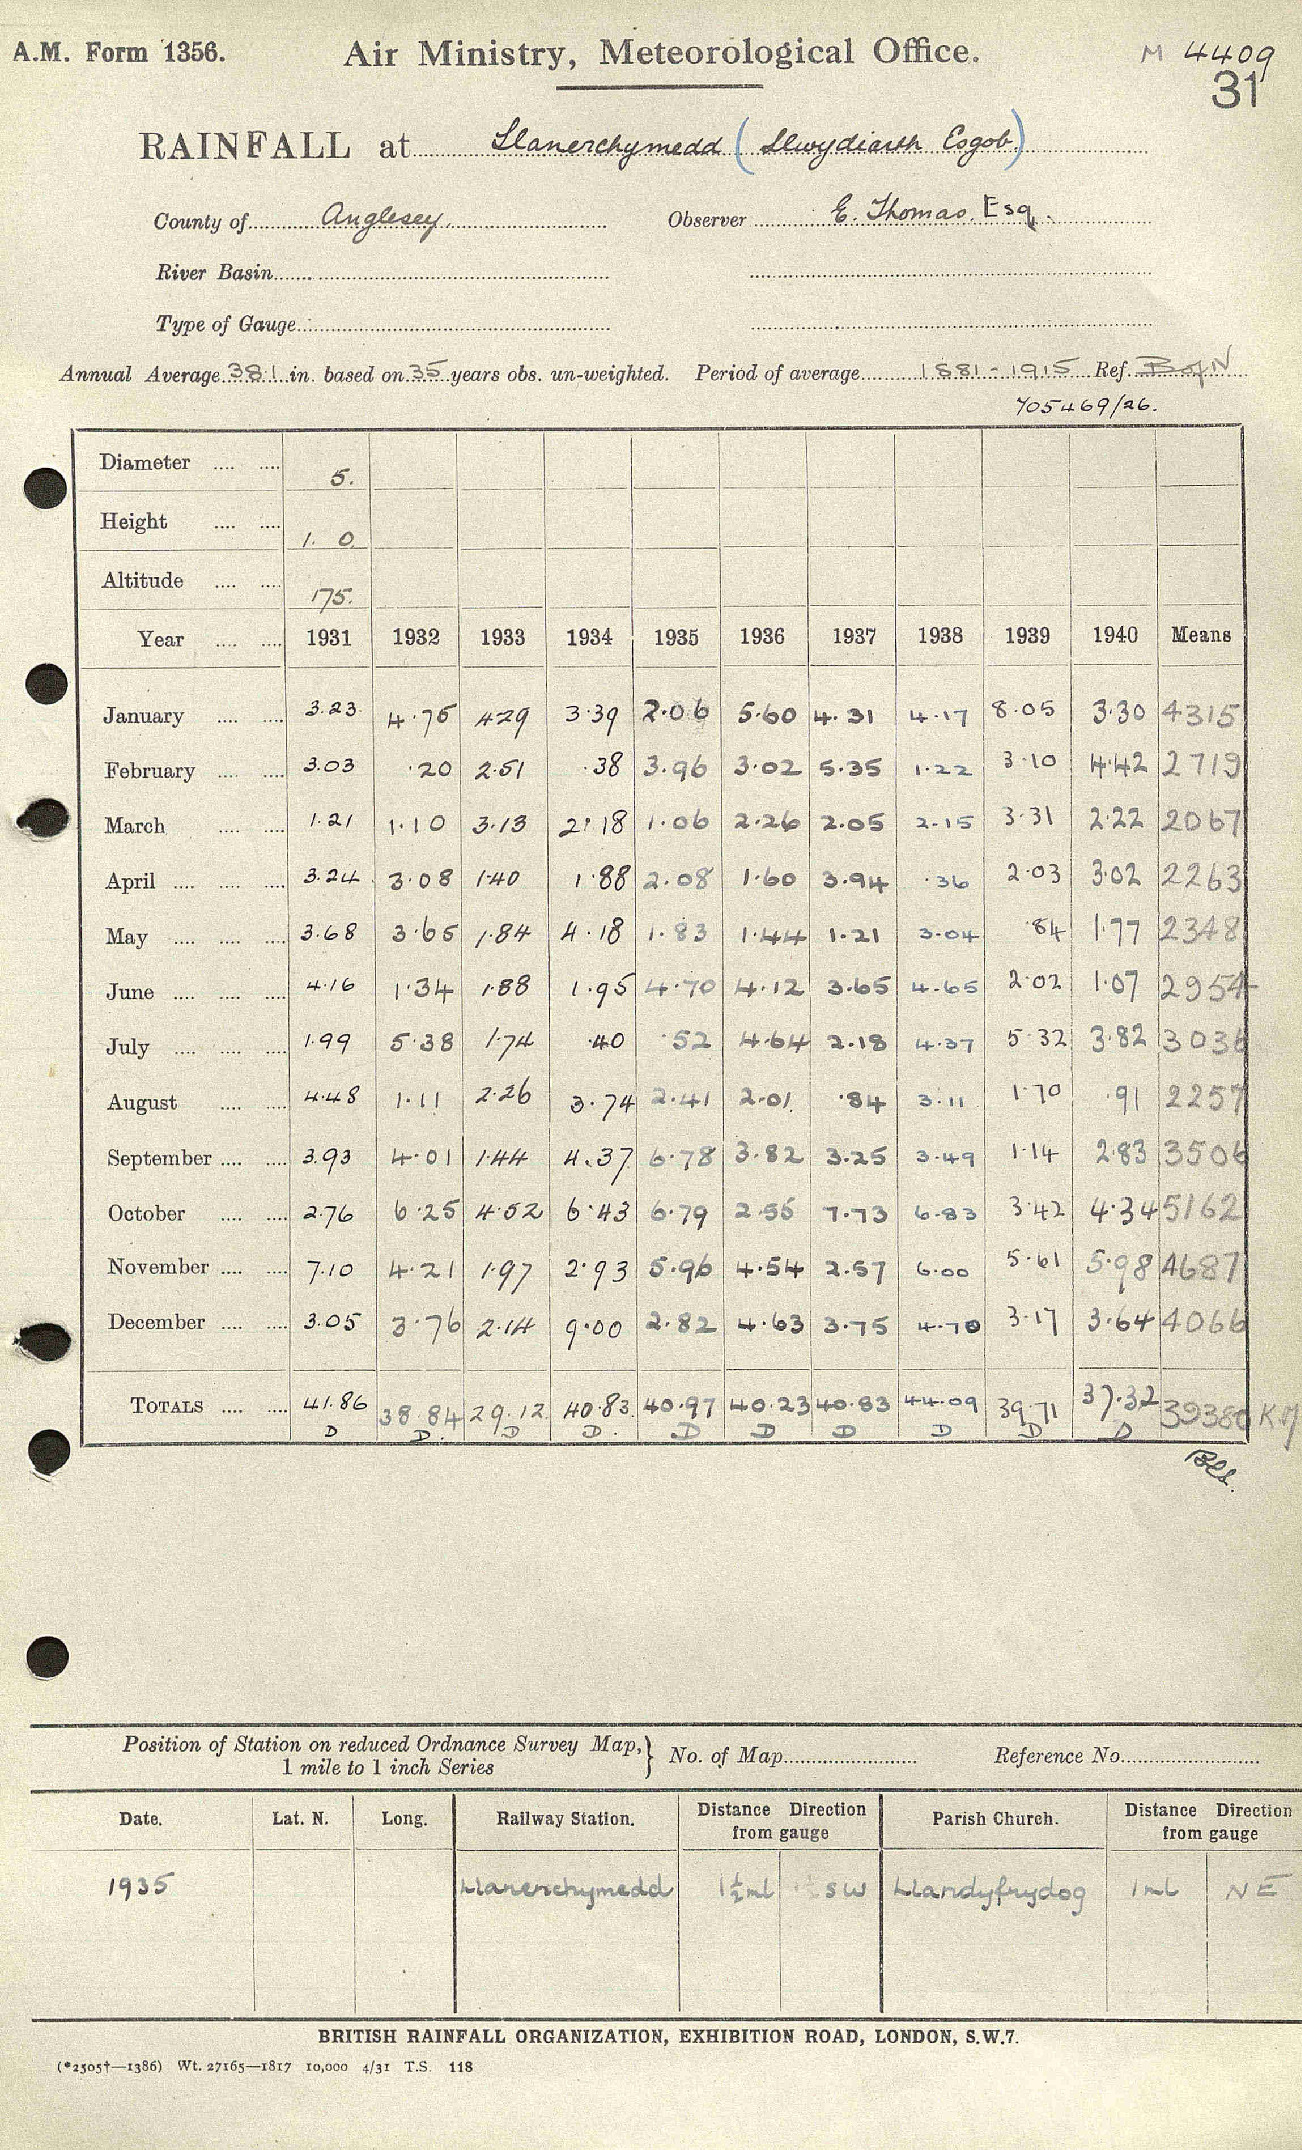 A.M. Form 1356. Air Ministry, Meteorological Office. M 4409
31
RAINFALL at Llanerchymedd (Llwydiarth Esgob.)
County of Anglesey. Observer E. Thomas. Esq.
River Basin
Type of Gauge
Annual Average 38.1 in. based on 35 years obs. un-weighted. Period of average 1881-1915 Ref. B of N
705469/26.
Diameter 5.
Height 1. 0.
Altitude 175.
Year 1931 1932 1933 1934 1935 1936 1937 1938 1939 1940 Means
January 3.23 4.75 4.29 3.39 2.06 5.60 4.31 4.17 8.05 3.30 4315
February 3.03 .20 2.51 .38 3.96 3.02 5.35 1.22 3.10 4.42 2719
March 1.21 1.10 3.13 2.18 1.06 2.26 2.05 2.15 3.31 2.22 2067
April 3.24 3.08 1.40 1.88 2.08 1.60 3.94 .36 2.03 3.02 2263
May 3.68 3.65 1.84 4.18 1.83 1.44 1.21 3.04 .84 1.77 2348
June 4.16 1.34 1.88 1.95 4.70 4.12 3.65 4.65 2.02 1.07 2954
July 1.99 5.38 1.74 .40 .52 4.64 2.18 4.37 5.32 3.82 3036
August 4.48 1.11 2.26 3.74 2.41 2.01 .84 3.11 1.70 .91 2257
September 3.93 4.01 1.44 4.37 6.78 3.82 3.25 3.49 1.14 2.83 3506
October 2.76 6.25 4.52 6.43 6.79 2.55 7.73 6.83 3.42 4.34 5162
November 7.10 4.21 1.97 2.93 5.96 4.54 2.57 6.00 5.61 5.98 4687
December 3.05 3.76 2.14 9.00 2.82 4.63 3.75 4.70 3.17 3.64 4066
TOTALS 41.86 38.84 29.12 40.83 40.97 40.23 40.83 44.09 39.71 37.32 39380
D D D D D D D D D D
Position of Station on reduced Ordnance Survey Map, } No. of Map Reference No.
1 mile to 1 inch Series
Date. Lat. N. Long. Railway Station. Distance Direction from gauge Parish Church. Distance Direction from gauge
1935 Llanerchymedd 1½ml SW Llandyfrydog 1ml NE
BRITISH RAINFALL ORGANIZATION, EXHIBITION ROAD, LONDON, S.W.7.
(*2505†—1386) Wt. 27165—1817 10,000 4/31 T.S. 118